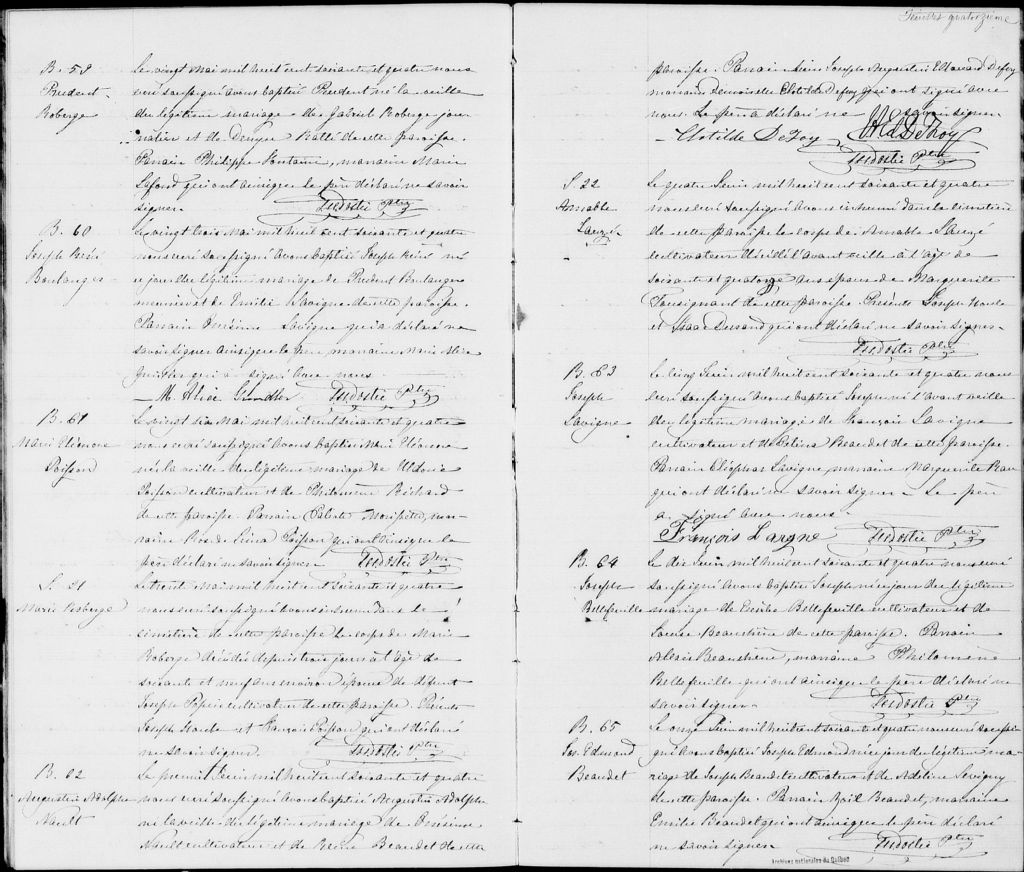 Feuillet quatorzième
B. 59
Prudent
Roberge
Le vingt Mai mil huit cent soixante et quatre nous
curé soussigné avons baptisé Prudent né la veille
du légitime mariage de Gabriel Roberge jour
nalier et de Ratté de cette paroisse.
Parrain Philippe Fontaine, marraine Marie
Lafond qui ont ainsi que le père déclaré ne savoir
signer.
B. 60
Joseph
Boulanger
Le vingt trois Mai mil huit cent soixante et quatre
nous curé soussigné avons baptisé Joseph né
ce jour du légitime mariage de Prudent Boulanger
meunier et de Emilie Lavigne de cette paroisse.
Parrain Onésime Lavigne qui a déclaré ne
savoir signer ainsi que le père marraine Alice
qui a signé avec nous.
M. Alice Ptre
B. 61
Marie Eléonore
Poisson
Le vingt six Mai mil huit cent soixante et quatre
nous curé soussigné avons baptisé Marie Eléonore
née la veille du légitime mariage de
Poisson cultivateur et de Philomène Béchard
de cette paroisse. Parrain mar
raine Rose de Lima Poisson qui ont ainsi que le
père déclaré ne savoir signer. Ptre
S. 21
Marie Roberge
Le trente Mai mil huit cent soixante et quatre
nous curé soussigné avons inhumé dans le
cimetière de cette paroisse le corps de Marie
Roberge décédée depuis trois jours à l'âge de
soixante et neuf ans environ épouse de défunt
Joseph cultivateur de cette paroisse. Présents
Joseph Houle et François Poisson qui ont déclaré
ne savoir signer. Ptre
B. 62
Augustin Adolphe
Nault
Le premier Juin mil huit cent soixante et quatre
nous curé soussigné avons baptisé Augustin Adolphe
né la veille du légitime mariage de Onésime
Nault cultivateur et de Beaudet de cette
paroisse. Parrain Joseph Augustin Edouard Defoy
marraine Demoiselle Clotilde Defoy qui ont signé avec
nous. Le père a déclaré ne savoir signer
Clotilde DeFoy
Ptre
S. 22
Amable
Lauzé
Le quatre Juin mil huit cent soixante et quatre
nous curé soussigné avons inhumé dans le cimetière
de cette paroisse le corps de Amable Lauzé
cultivateur décédé l'avant veille à l'âge de
soixante et quatorze ans époux de Marguerite
Toussignant de cette paroisse. Présents Joseph Houle
et Isaac Durand qui ont déclaré ne savoir signer.
Ptre
B. 63
Joseph
Lavigne
Le cinq Juin mil huit cent soixante et quatre nous
curé soussigné avons baptisé Joseph né l'avant veille
du légitime mariage de François Lavigne
cultivateur et de Beaudet de cette paroisse.
Parrain Cléophas Lavigne, marraine Marguerite
qui ont déclaré ne savoir signer. Le père
a signé avec nous.
François Ptre
B. 64
Joseph
Bellefeuille
Le dix Juin mil huit cent soixante et quatre nous curé
soussigné avons baptisé Joseph né ce jour du légitime
mariage de Bellefeuille cultivateur et de
Louise Beauchène de cette paroisse. Parrain
Alexis Beauchène, marraine Philomène
Bellefeuille qui ont ainsi que le père déclaré ne
savoir signer. Ptre
B. 65
Jos. Edmond
Beaudet
Le onze Juin mil huit cent soixante et quatre nous curé soussi
gné avons baptisé Joseph Edmond né ce jour du légitime ma
riage de Joseph Beaudet cultivateur et de Adeline Levigny
de cette paroisse. Parrain Beaudet, marraine
Emilie Beaudet qui ont ainsi que le père déclaré
ne savoir signer. Ptre
Archives nationales du Québec